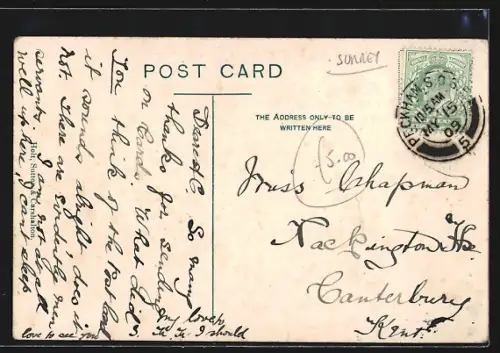 SURREY
POST CARD
THE ADDRESS ONLY TO BE
WRITTEN HERE
PECKHAM S.O. S.E.
10.15AM
MR 15
09
5
5.00
Miss Chapman
Nackington Ho.
Canterbury
Kent
Dear A.C. So many
thanks for sending
on Cards. What did
You think of the last one
it sounds alright, does it
not. There are evidently
servants
I am not at all
well up here, I can't sleep.
my love to
I should
love to see you
Holt, Sutton & Carshalton.